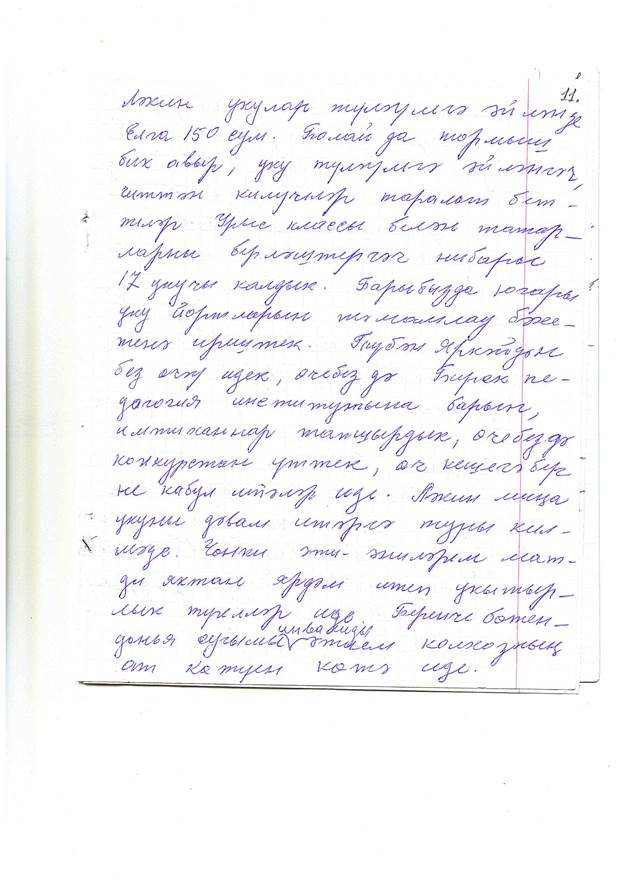 11.
Ләкин укулар түләүлегә әйләнде
Елга 150 сум. Болай да тормыш
бик авыр, уку түләүлегә әйләнгәч,
читтән килүчеләр таралып бет-
теләр. Урыс классы белән татар-
ларны берләштергәч нибарысы
17 укучы калдык. Барыбызда югары
уку йортларын тәмамлау бәхе-
тенә ирештек. Түбән Яркәйдән
без өчәү идек, өчебездә Бирск пе-
дагогия институтына барып,
имтиханнар тапшырдык, өчебездә
конкурстан үттек, өч кешегә бер-
не кабул итәләр иде. Ләкин миңа
укуны дәвам итәргә туры кил-
мәде. Чөнки әти-әниләрем мат-
ди яктан ярдәм итеп укытыр-
лык түгелләр иде. Беренче бөтен-
дөнья сугышы инвалиды әтием колхозның
ат көтүен көтә иде.